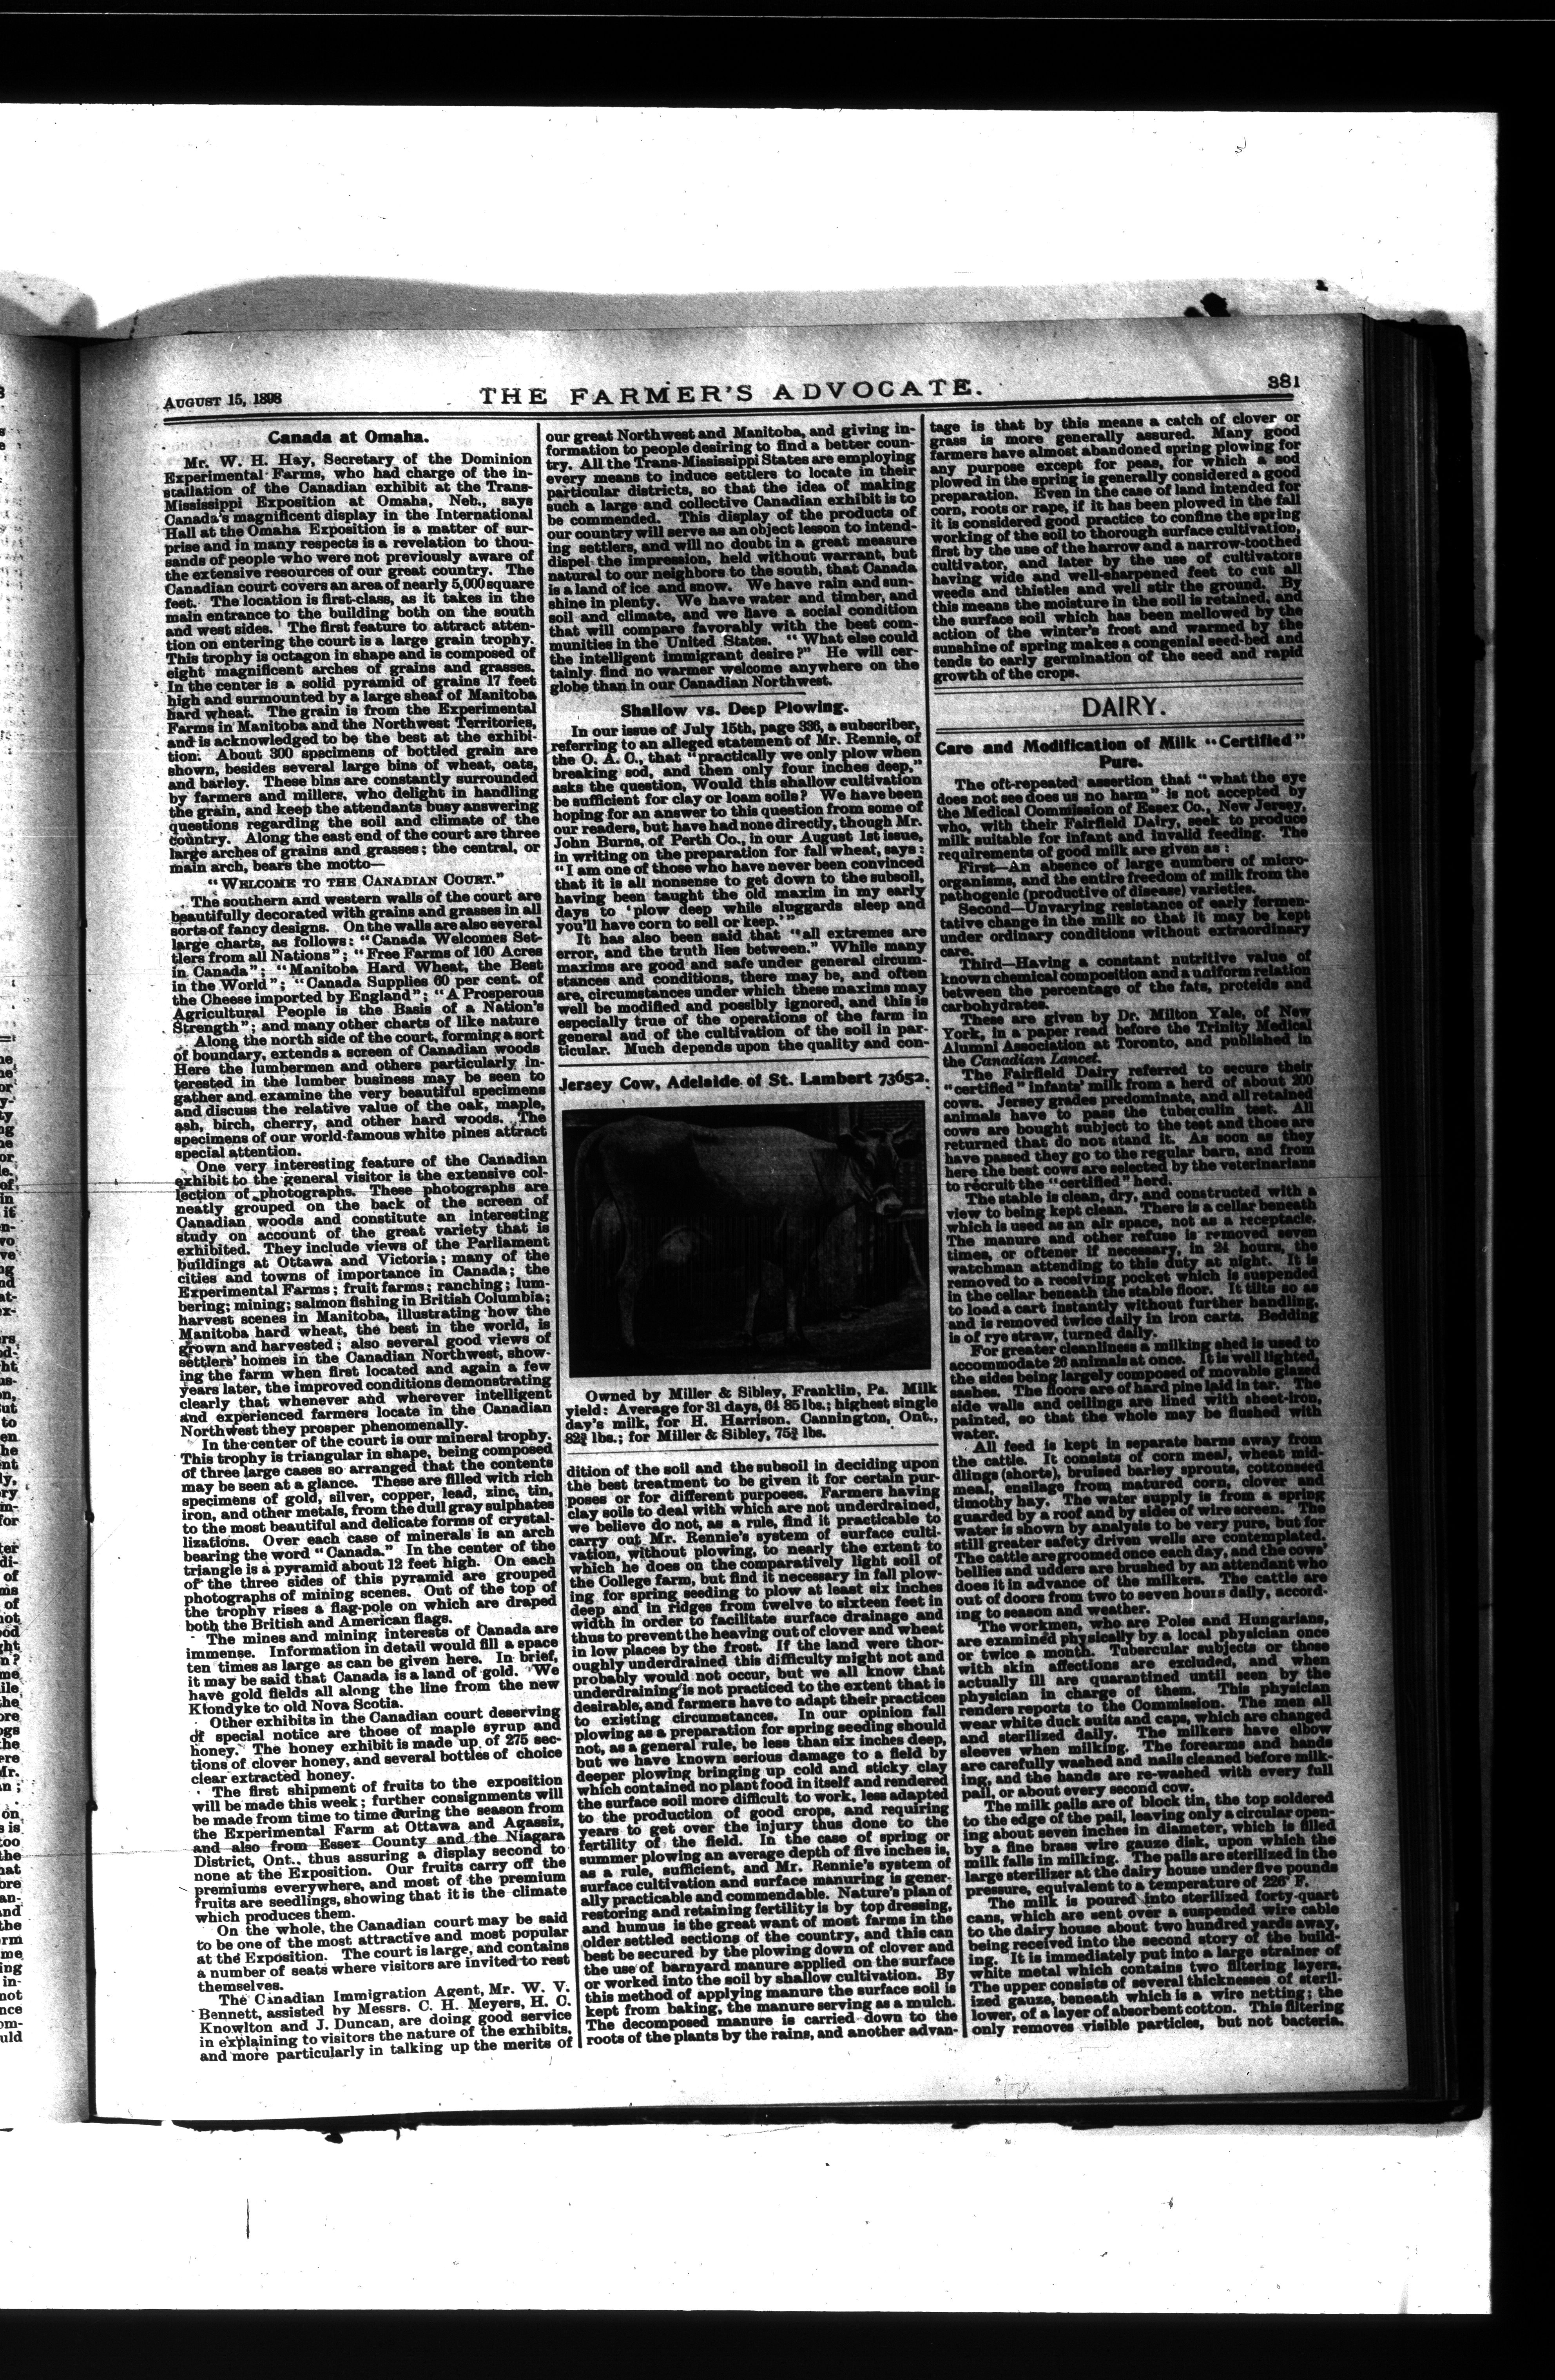 AUGUST 15, 1898
THE FARMER'S ADVOCATE.
381
Canada at Omaha.
Mr. W. H. Hay, Secretary of the Dominion
Experimental Farms, who had charge of the in-
stallation of the Canadian exhibit at the Trans-
Mississippi Exposition at Omaha, Neb., says
Canada's magnificent display in the International
Hall at the Omaha Exposition is a matter of sur-
prise and in many respects is a revelation to thou-
sands of people who were not previously aware of
the extensive resources of our great country. The
Canadian court covers an area of nearly 5,000 square
feet. The location is first-class, as it takes in the
main entrance to the building both on the south
and west sides. The first feature to attract atten-
tion on entering the court is a large grain trophy.
This trophy is octagon in shape and is composed of
eight magnificent arches of grains and grasses.
In the center is a solid pyramid of grains 17 feet
high and surmounted by a large sheaf of Manitoba
hard wheat. The grain is from the Experimental
Farms in Manitoba and the Northwest Territories,
and is acknowledged to be the best at the exhibi-
tion. About 300 specimens of bottled grain are
shown, besides several large bins of wheat, oats,
and barley. These bins are constantly surrounded
by farmers and millers, who delight in handling
the grain, and keep the attendants busy answering
questions regarding the soil and climate of the
country. Along the east end of the court are three
large arches of grains and grasses; the central, or
main arch, bears the motto—
"WELCOME TO THE CANADIAN COURT."
The southern and western walls of the court are
beautifully decorated with grains and grasses in all
sorts of fancy designs. On the walls are also several
large charts, as follows: "Canada Welcomes Set-
tlers from all Nations"; "Free Farms of 160 Acres
in Canada"; "Manitoba Hard Wheat, the Best
in the World"; "Canada Supplies 60 per cent. of
the Cheese imported by England"; "A Prosperous
Agricultural People is the Basis of a Nation's
Strength"; and many other charts of like nature
Along the north side of the court, forming a sort
of boundary, extends a screen of Canadian woods
Here the lumbermen and others particularly in-
terested in the lumber business may be seen to
gather and examine the very beautiful specimens
and discuss the relative value of the oak, maple,
ash, birch, cherry, and other hard woods. The
specimens of our world-famous white pines attract
special attention.
One very interesting feature of the Canadian
exhibit to the general visitor is the extensive col-
lection of photographs. These photographs are
neatly grouped on the back of the screen of
Canadian woods and constitute an interesting
study on account of the great variety that is
exhibited. They include views of the Parliament
buildings at Ottawa and Victoria; many of the
cities and towns of importance in Canada; the
Experimental Farms; fruit farms; ranching; lum-
bering; mining; salmon fishing in British Columbia;
harvest scenes in Manitoba, illustrating how the
Manitoba hard wheat, the best in the world, is
grown and harvested; also several good views of
settlers' homes in the Canadian Northwest, show-
ing the farm when first located and again a few
years later, the improved conditions demonstrating
clearly that whenever and wherever intelligent
and experienced farmers locate in the Canadian
Northwest they prosper phenomenally.
In the center of the court is our mineral trophy.
This trophy is triangular in shape, being composed
of three large cases so arranged that the contents
may be seen at a glance. These are filled with rich
specimens of gold, silver, copper, lead, zinc, tin,
iron, and other metals, from the dull gray sulphates
to the most beautiful and delicate forms of crystal-
lizations. Over each case of minerals is an arch
bearing the word "Canada." In the center of the
triangle is a pyramid about 12 feet high. On each
of the three sides of this pyramid are grouped
photographs of mining scenes. Out of the top of
the trophy rises a flag-pole on which are draped
both the British and American flags.
The mines and mining interests of Canada are
immense. Information in detail would fill a space
ten times as large as can be given here. In brief,
it may be said that Canada is a land of gold. We
have gold fields all along the line from the new
Klondyke to old Nova Scotia.
Other exhibits in the Canadian court deserving
of special notice are those of maple syrup and
honey. The honey exhibit is made up of 275 sec-
tions of clover honey, and several bottles of choice
clear extracted honey.
The first shipment of fruits to the exposition
will be made this week; further consignments will
be made from time to time during the season from
the Experimental Farm at Ottawa and Agassiz,
and also from Essex County and the Niagara
District, Ont., thus assuring a display second to
none at the Exposition. Our fruits carry off the
premiums everywhere, and most of the premium
fruits are seedlings, showing that it is the climate
which produces them.
On the whole, the Canadian court may be said
to be one of the most attractive and most popular
at the Exposition. The court is large, and contains
a number of seats where visitors are invited to rest
themselves.
The Canadian Immigration Agent, Mr. W. V.
Bennett, assisted by Messrs. C. H. Meyers, H. C.
Knowlton and J. Duncan, are doing good service
in explaining to visitors the nature of the exhibits,
and more particularly in talking up the merits of
our great Northwest and Manitoba, and giving in-
formation to people desiring to find a better coun-
try. All the Trans-Mississippi States are employing
every means to induce settlers to locate in their
particular districts, so that the idea of making
such a large and collective Canadian exhibit is to
be commended. This display of the products of
our country will serve as an object lesson to intend-
ing settlers, and will no doubt in a great measure
dispel the impression, held without warrant, but
natural to our neighbors to the south, that Canada
is a land of ice and snow. We have rain and sun-
shine in plenty. We have water and timber, and
soil and climate, and we have a social condition
that will compare favorably with the best com-
munities in the United States. "What else could
the intelligent immigrant desire?" He will cer-
tainly find no warmer welcome anywhere on the
globe than in our Canadian Northwest.
Shallow vs. Deep Plowing.
In our issue of July 15th, page 336, a subscriber,
referring to an alleged statement of Mr. Rennie, of
the O. A. C., that "practically we only plow when
breaking sod, and then only four inches deep,"
asks the question, Would this shallow cultivation
be sufficient for clay or loam soils? We have been
hoping for an answer to this question from some of
our readers, but have had none directly, though Mr.
John Burns, of Perth Co., in our August 1st issue,
in writing on the preparation for fall wheat, says:
"I am one of those who have never been convinced
that it is all nonsense to get down to the subsoil,
having been taught the old maxim in my early
days to 'plow deep while sluggards sleep and
you'll have corn to sell or keep.'"
It has also been said that "all extremes are
error, and the truth lies between." While many
maxims are good and safe under general circum-
stances and conditions, there may be, and often
are, circumstances under which these maxims may
well be modified and possibly ignored, and this is
especially true of the operations of the farm in
general and of the cultivation of the soil in par-
ticular. Much depends upon the quality and con-
Jersey Cow, Adelaide of St. Lambert 73652.
Owned by Miller & Sibley, Franklin, Pa. Milk
yield: Average for 31 days, 64 85 lbs.; highest single
day's milk, for H. Harrison, Cannington, Ont.,
82¾ lbs.; for Miller & Sibley, 75¾ lbs.
dition of the soil and the subsoil in deciding upon
the best treatment to be given it for certain pur-
poses or for different purposes. Farmers having
clay soils to deal with which are not underdrained,
we believe do not, as a rule, find it practicable to
carry out Mr. Rennie's system of surface culti-
vation, without plowing, to nearly the extent to
which he does on the comparatively light soil of
the College farm, but find it necessary in fall plow-
ing for spring seeding to plow at least six inches
deep and in ridges from twelve to sixteen feet in
width in order to facilitate surface drainage and
thus to prevent the heaving out of clover and wheat
in low places by the frost. If the land were thor-
oughly underdrained this difficulty might not and
probably would not occur, but we all know that
underdraining is not practiced to the extent that is
desirable, and farmers have to adapt their practices
to existing circumstances. In our opinion fall
plowing as a preparation for spring seeding should
not, as a general rule, be less than six inches deep,
but we have known serious damage to a field by
deeper plowing bringing up cold and sticky clay
which contained no plant food in itself and rendered
the surface soil more difficult to work, less adapted
to the production of good crops, and requiring
years to get over the injury thus done to the
fertility of the field. In the case of spring or
summer plowing an average depth of five inches is,
as a rule, sufficient, and Mr. Rennie's system of
surface cultivation and surface manuring is gener-
ally practicable and commendable. Nature's plan of
restoring and retaining fertility is by top dressing,
and humus is the great want of most farms in the
older settled sections of the country, and this can
best be secured by the plowing down of clover and
the use of barnyard manure applied on the surface
or worked into the soil by shallow cultivation. By
this method of applying manure the surface soil is
kept from baking, the manure serving as a mulch.
The decomposed manure is carried down to the
roots of the plants by the rains, and another advan-
tage is that by this means a catch of clover or
grass is more generally assured. Many good
farmers have almost abandoned spring plowing for
any purpose except for peas, for which a sod
plowed in the spring is generally considered a good
preparation. Even in the case of land intended for
corn, roots or rape, if it has been plowed in the fall
it is considered good practice to confine the spring
working of the soil to thorough surface cultivation,
first by the use of the harrow and a narrow-toothed
cultivator, and later by the use of cultivators
having wide and well-sharpened feet to cut all
weeds and thistles and well stir the ground. By
this means the moisture in the soil is retained, and
the surface soil which has been mellowed by the
action of the winter's frost and warmed by the
sunshine of spring makes a congenial seed-bed and
tends to early germination of the seed and rapid
growth of the crops.
DAIRY.
Care and Modification of Milk "Certified"
Pure.
The oft-repeated assertion that "what the eye
does not see does us no harm" is not accepted by
the Medical Commission of Essex Co., New Jersey,
who, with their Fairfield Dairy, seek to produce
milk suitable for infant and invalid feeding. The
requirements of good milk are given as:
First—An absence of large numbers of micro-
organisms, and the entire freedom of milk from the
pathogenic (productive of disease) varieties.
Second—Unvarying resistance of early fermen-
tative change in the milk so that it may be kept
under ordinary conditions without extraordinary
care.
Third—Having a constant nutritive value of
known chemical composition and a uniform relation
between the percentage of the fats, proteids and
carbohydrates.
These are given by Dr. Milton Yale, of New
York, in a paper read before the Trinity Medical
Alumni Association at Toronto, and published in
the Canadian Lancet.
The Fairfield Dairy referred to secure their
"certified" infants' milk from a herd of about 200
cows. Jersey grades predominate, and all retained
animals have to pass the tuberculin test. All
cows are bought subject to the test and those are
returned that do not stand it. As soon as they
have passed they go to the regular barn, and from
here the best cows are selected by the veterinarians
to recruit the "certified" herd.
The stable is clean, dry, and constructed with a
view to being kept clean. There is a cellar beneath
which is used as an air space, not as a receptacle.
The manure and other refuse is removed seven
times, or oftener if necessary, in 24 hours, the
watchman attending to this duty at night. It is
removed to a receiving pocket which is suspended
in the cellar beneath the stable floor. It tilts so as
to load a cart instantly without further handling,
and is removed twice daily in iron carts. Bedding
is of rye straw, turned daily.
For greater cleanliness a milking shed is used to
accommodate 26 animals at once. It is well lighted,
the sides being largely composed of movable glazed
sashes. The floors are of hard pine laid in tar. The
side walls and ceilings are lined with sheet-iron,
painted, so that the whole may be flushed with
water.
All feed is kept in separate barns away from
the cattle. It consists of corn meal, wheat mid-
dlings (shorts), bruised barley sprouts, cottonseed
meal, ensilage from matured corn, clover and
timothy hay. The water supply is from a spring
guarded by a roof and by sides of wire screen. The
water is shown by analysis to be very pure, but for
still greater safety driven wells are contemplated.
The cattle are groomed once each day, and the cows'
bellies and udders are brushed by an attendant who
does it in advance of the milkers. The cattle are
out of doors from two to seven hours daily, accord-
ing to season and weather.
The workmen, who are Poles and Hungarians,
are examined physically by a local physician once
or twice a month. Tubercular subjects or those
with skin affections are excluded, and when
actually ill are quarantined until seen by the
physician in charge of them. This physician
renders reports to the Commission. The men all
wear white duck suits and caps, which are changed
and sterilized daily. The milkers have elbow
sleeves when milking. The forearms and hands
are carefully washed and nails cleaned before milk-
ing, and the hands are re-washed with every full
pail, or about every second cow.
The milk pails are of block tin, the top soldered
to the edge of the pail, leaving only a circular open-
ing about seven inches in diameter, which is filled
by a fine brass wire gauze disk, upon which the
milk falls in milking. The pails are sterilized in the
large sterilizer at the dairy house under five pounds
pressure, equivalent to a temperature of 226° F.
The milk is poured into sterilized forty-quart
cans, which are sent over a suspended wire cable
to the dairy house about two hundred yards away,
being received into the second story of the build-
ing. It is immediately put into a large strainer of
white metal which contains two filtering layers.
The upper consists of several thicknesses of steril-
ized gauze, beneath which is a wire netting; the
lower, of a layer of absorbent cotton. This filtering
only removes visible particles, but not bacteria.